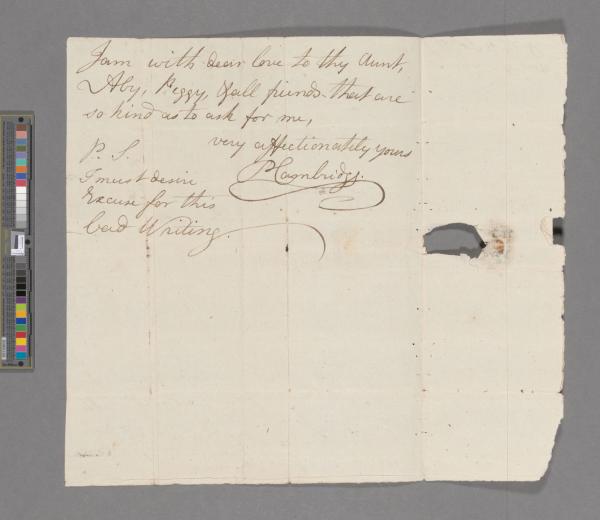 I am with dear love to thy Aunt,
Aby, Peggy, & all friends that are
so kind as to ask for me,
very affectionately yours
P. S.
I must desire
Excuse for this
bad Writing.